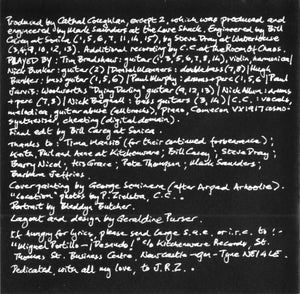 Produced by Cathal Coughlan, except 2, which was produced and
engineered by Mark Saunders at the Love Shack. Engineered by Bill
Carey at Sonica (1, 5, 6, 7, 11, 14, 15), by Steve Dray at Waterhouse
(3, 4, 8, 10, 12, 13). Additional recording by C.C. at The Room Of Chaos.
PLAYED BY: Tim Bradshaw: guitar (1, 3, 5, 6, 7, 8, 14), violin, harmonica /
Nick Bunker: guitar (2) / Daniel Manners: doublebass (7, 8) / Hugh
Barker: guitar (1, 8, 5) / Paul Murphy: drums + perc (1, 5, 6) / Paul
Jarvis: Woolworths "Dying Darling" guitar (9, 12) / Nick Allum: drums
+ perc (7, 8) / Nick Bagnall: bass guitars (3, 14) / C.C.: vocals,
melodica, guitar abuse (all tracks), piano, Cameron VX1917 cosmo-
synthesiser, cheating (digital domain).
Final edit by Bill Carey at Sonica.
Thanks to: Time Mansio (for their continued forbearance);
Keith, Phil and Anne at Kitchenware; Bill Carey; Steve Dray;
Barry Nicol, His Grace; Pete Thompson; Mark Saunders;
Barbara Jeffries
Cover painting by George Seminara (after Arpad Arboolie).
"Location" photos by P. Ziolota, C.C..
Portrait by Bleddyn Butcher.
Layout and design by Geraldine Purser.
If hungry for lyrics, please send large s.a.e. or i.r.c. to:-
"Miguel Portillo - Posando!" c/o Kitchenware Records, St.
Thomas St. Business Centre, Newcastle-Upon-Tyne NE1 4LE.
Dedicated, with all my love, to J.R.Z..